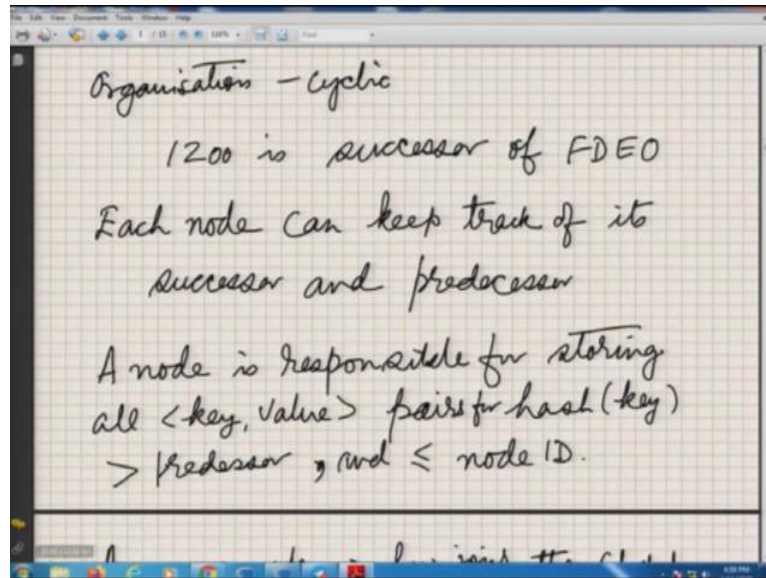 File Edit View Document Tools Window Help
1 / 15 118% Find
Organisation - cyclic
1200 is successor of FDE0
Each node can keep track of its
successor and predecessor
A node is responsible for storing
all <key, value> pairs for hash (key)
> predessor, and ≤ node ID.
4:38 PM